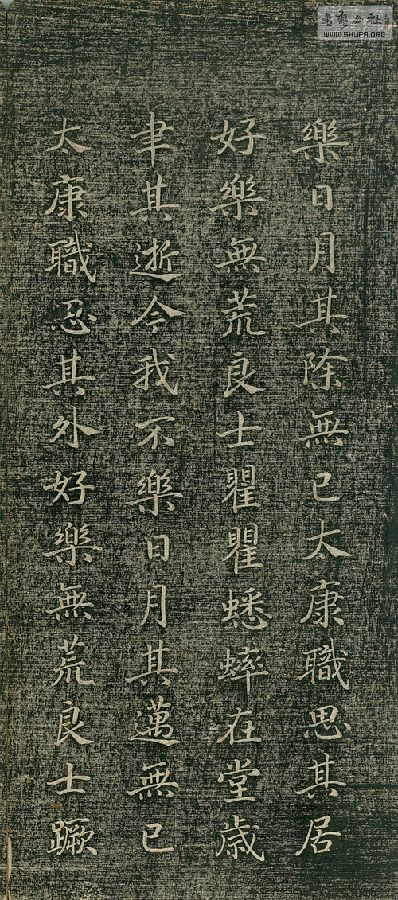 書藝公社
WWW.SHUFA.ORG
樂日月其除無已太康職思其居
好樂無荒良士瞿瞿蟋蟀在堂歲
聿其逝今我不樂日月其邁無已
太康職忍其外好樂無荒良士蹶